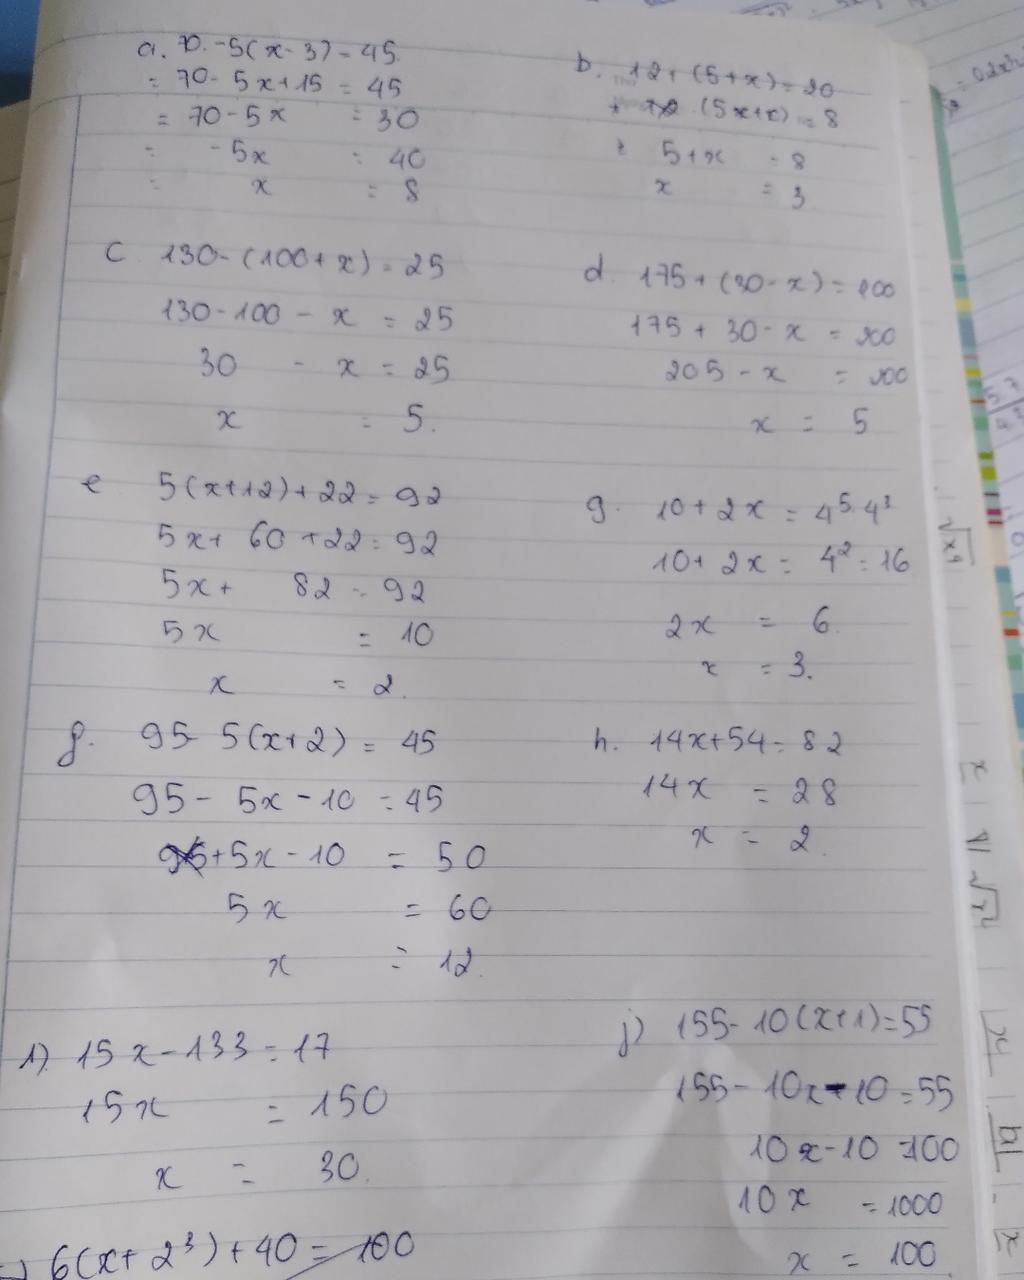 a. 70. -5(x-3) = 45
= 70 - 5x+15 = 45
= 70 - 5x = 30
= -5x = 40
= x = 8
b. 12 + (5+x) = 20
(5x+x) = 8
5+x = 8
x = 3
c 130-(100+x) = 25
130-100 - x = 25
30 - x = 25
x = 5.
d. 175 + (30-x) = 200
175 + 30 - x = 200
205 - x = 200
x = 5
e 5(x+12)+22 = 92
5x+ 60 +22 = 92
5x+ 82 = 92
5x = 10
x = 2.
g. 10+2x = 4⁵: 4³
10+ 2x = 4² = 16
2x = 6.
x = 3.
f. 95- 5(x+2) = 45
95 - 5x - 10 = 45
+5x - 10 = 50
5x = 60
x = 12.
h. 14x+54 = 82
14x = 28
x = 2.
1). 15x - 133 = 17
15x = 150
x = 30.
j) 155- 10(x+1) = 55
155 - 10x - 10 = 55
10x - 10 = 100
10x = 1000
x = 100
6(x+ 2³) + 40 = 100